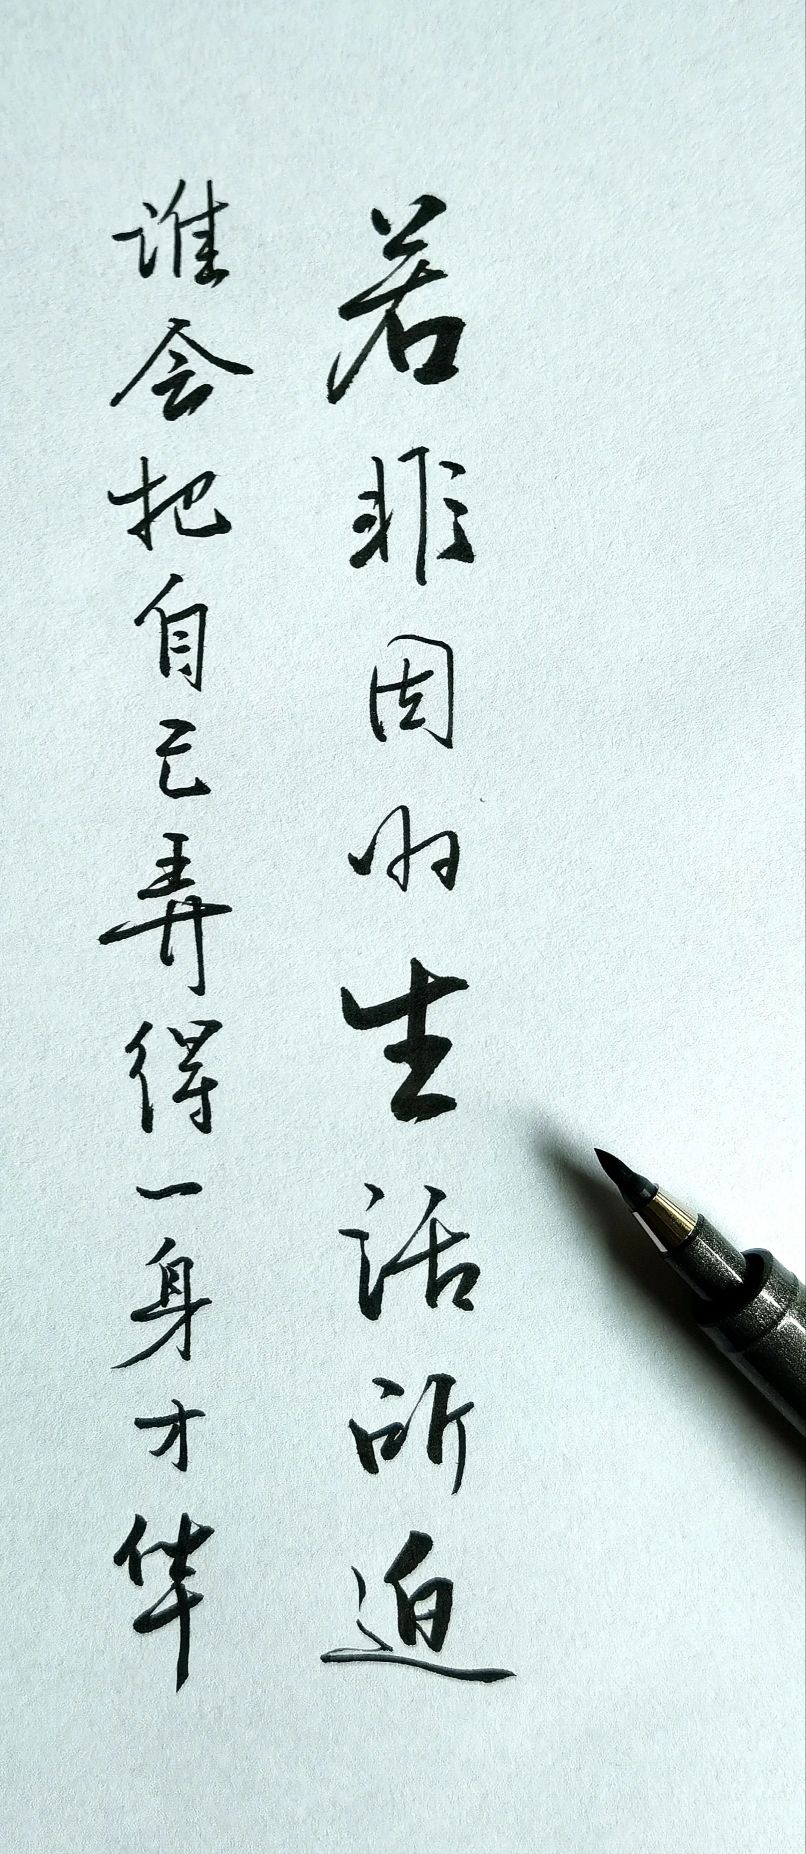 若非因为生活所迫
谁会把自己弄得一身才华